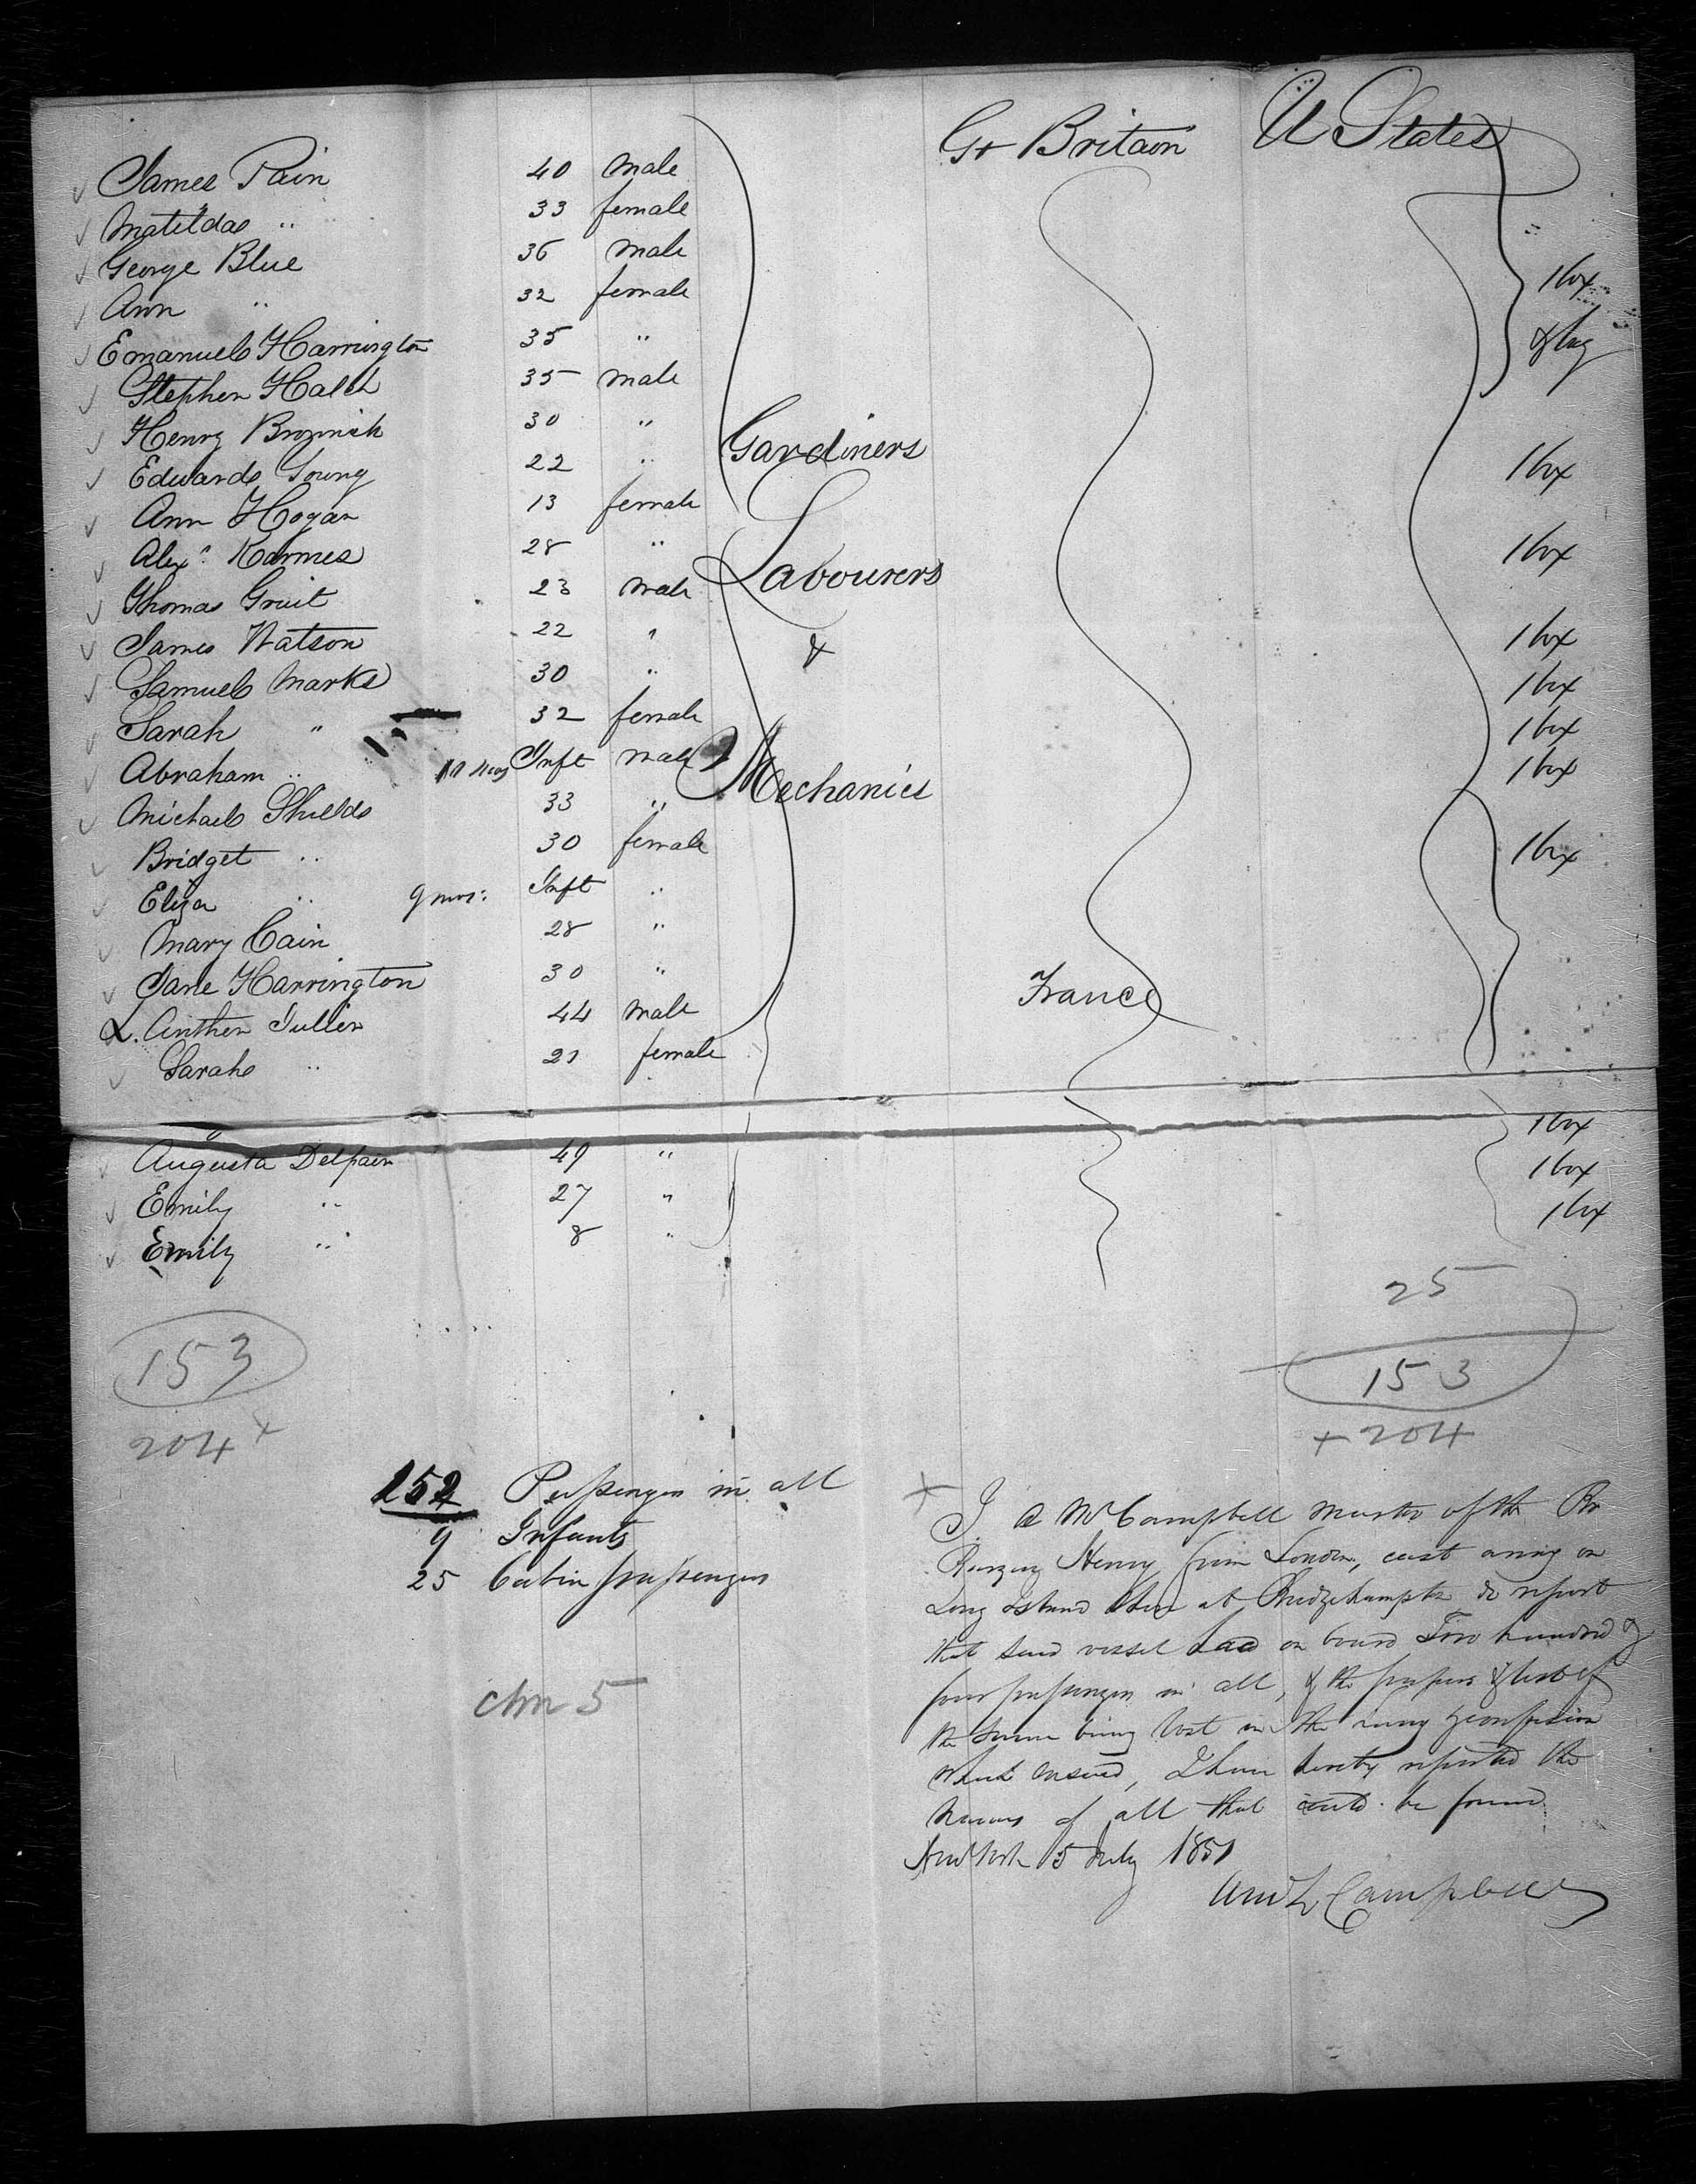 Gt Britain U States
James Pain 40 male
Matilda " 33 female
George Blue 36 male
Ann " 32 female 1 box
Emanuel Harrington 35 " & bag
Stephen 35 male
Henry 30 "
Edward Young 22 " Gardiners 1 box
Ann Hogan 13 female
Alexr 28 " 1 box
Thomas 23 male Labourers
James Watson 22 " & 1 box
Samuel Marks 30 " 1 box
Sarah " 32 female 1 box
Abraham " Inft male Mechanics 1 box
Michael Shields 33 "
Bridget " 30 female 1 box
Eliza " 9 mos: Inft "
Mary Cain 28 "
Jane Harrington 30 "
44 male France
Sarah " 21 female
Augusta 49 " 1 box
Emily " 27 " 1 box
Emily " 8 " 1 box
25
153
153
204 x
+ 204
Passengers in all
9 Infants
25 Cabin passengers
+ I Campbell Master of the Br
Henry from London, cast away on
Long Island Shore at do report
that said vessel had on board Two hundred &
four passengers in all, & the papers & list of
the same being lost in the &confusion
which ensued, I have hereby reported the
names of all that could be found.
New York 5 July 1851
Campbell
5